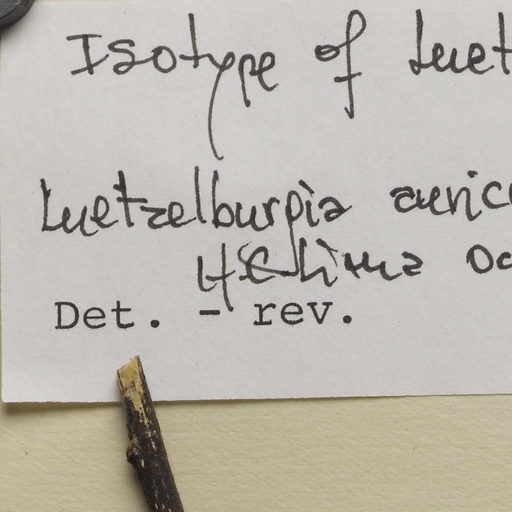 Isotype of Luet
Luetzelburgia auric
HCLima Oc
Det. - rev.